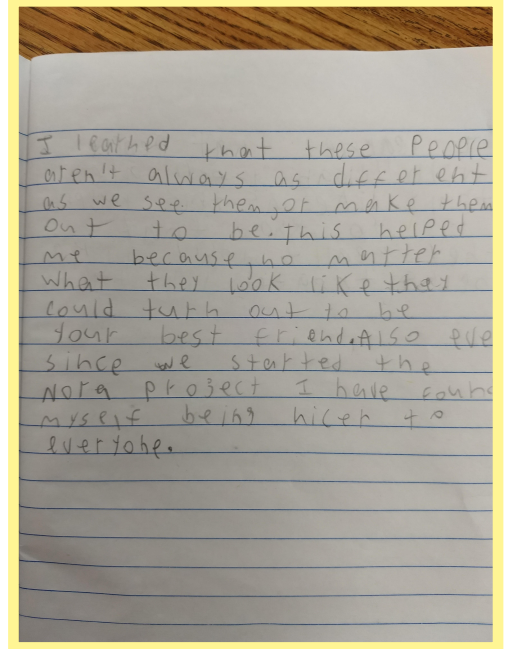 I learned that these People
aren't always as different
as we see them, or make them
out to be. This helped
me because, no matter
what they look like they
could turn out to be
your best friend. Also eve
since we started the
Nora project I have foun
myself being nicer to
everyone.